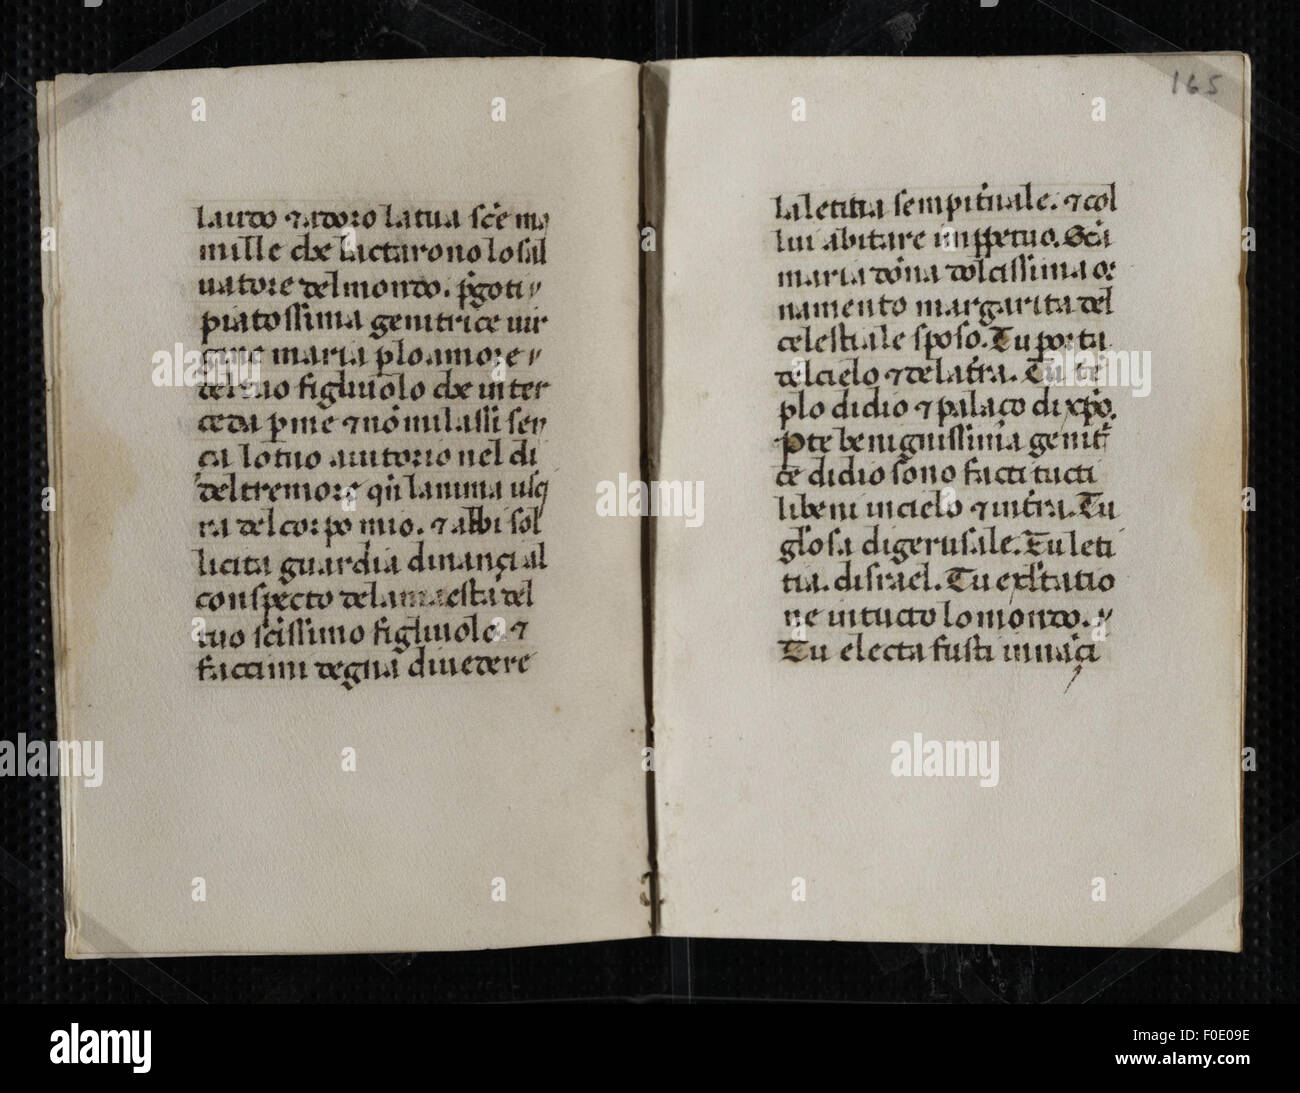 laudo & adoro la tua scẽ ma
mille che lactarono lo sal
uatore del mondo. p̃goti
piatossima genitrice uir
gine maria p lo amore
del tuo figliuolo che inter
ceda p me & nõ mi lassi sen
ça lo tuo aiutorio nel di
del tremore qñ lanima usci
ra del corpo mio. & abbi sol
licita guardia dinançi al
conspecto dela maesta del
tuo scissimo figliuolo. &
faccimi degna di uedere
165
la letitia sempit̃nale. & col
lui abitare in ppetuo. Scã
maria dõna dolcissima or
namento margarita del
celestiale sposo. Tu porta
del cielo & dela tr̃a. Tu tẽ
plo didio & palaço di xp̃o.
Pte benignissima genit̃
ce didio sono facti tucti
liberi in cielo & in tr̃a. Tu
glosa di gerusale. Tu leti
tia. disrael. Tu exl̃tatio
ne in tucto lo mondo.
Tu electa fusti innãçi
alamy
Image ID: F0E09E
www.alamy.com